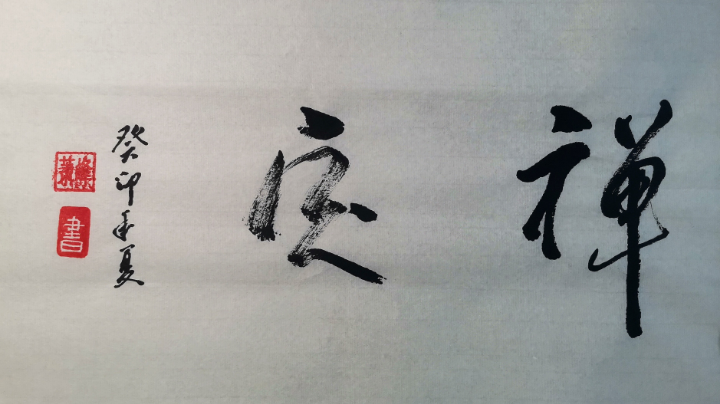 禅定
癸卯年夏
書